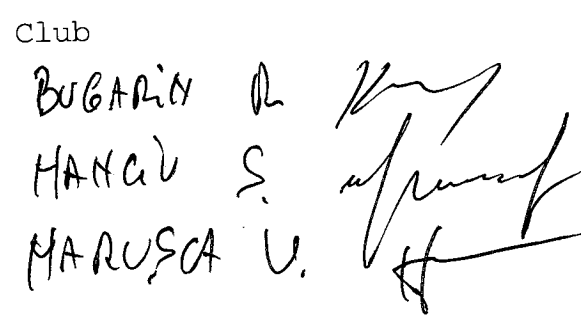 Club
BUGARIN R.
MANGIU S.
MARUȘCA V.